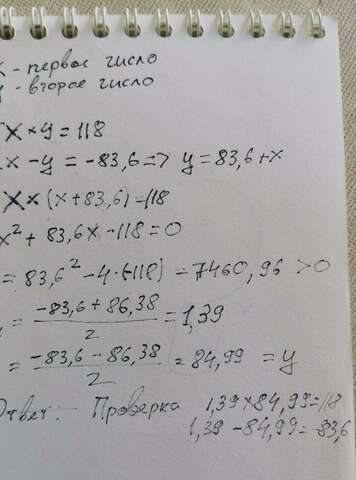 x - первое число
y - второе число
x × y = 118
x - y = -83,6 => y = 83,6 + x
x × (x + 83,6) = 118
x² + 83,6x - 118 = 0
= 83,6² - 4·(-118) = 7460,96 > 0
= (-83,6 + 86,38) / 2 = 1,39
= (-83,6 - 86,38) / 2 = 84,99 = y
Ответ: - Проверка 1,39 × 84,99 = 118
1,39 - 84,99 = -83,6